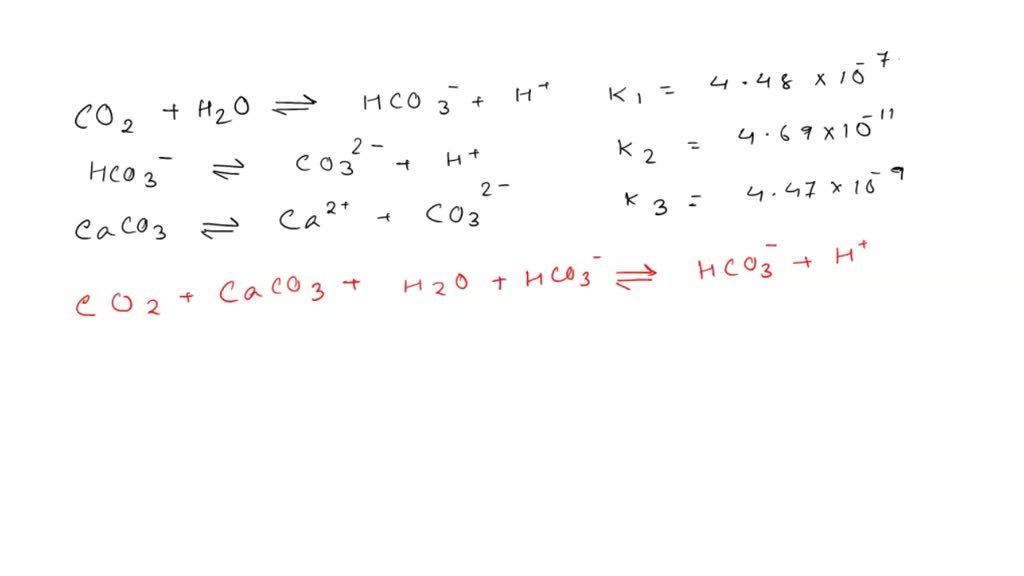 CO₂ + H₂O ⇌ HCO₃⁻ + H⁺ K₁ = 4.48 × 10⁻⁷
HCO₃⁻ ⇌ CO₃²⁻ + H⁺ K₂ = 4.69 × 10⁻¹¹
CaCO₃ ⇌ Ca²⁺ + CO₃²⁻ K₃ = 4.47 × 10⁻⁹
CO₂ + CaCO₃ + H₂O + HCO₃⁻ ⇌ HCO₃⁻ + H⁺